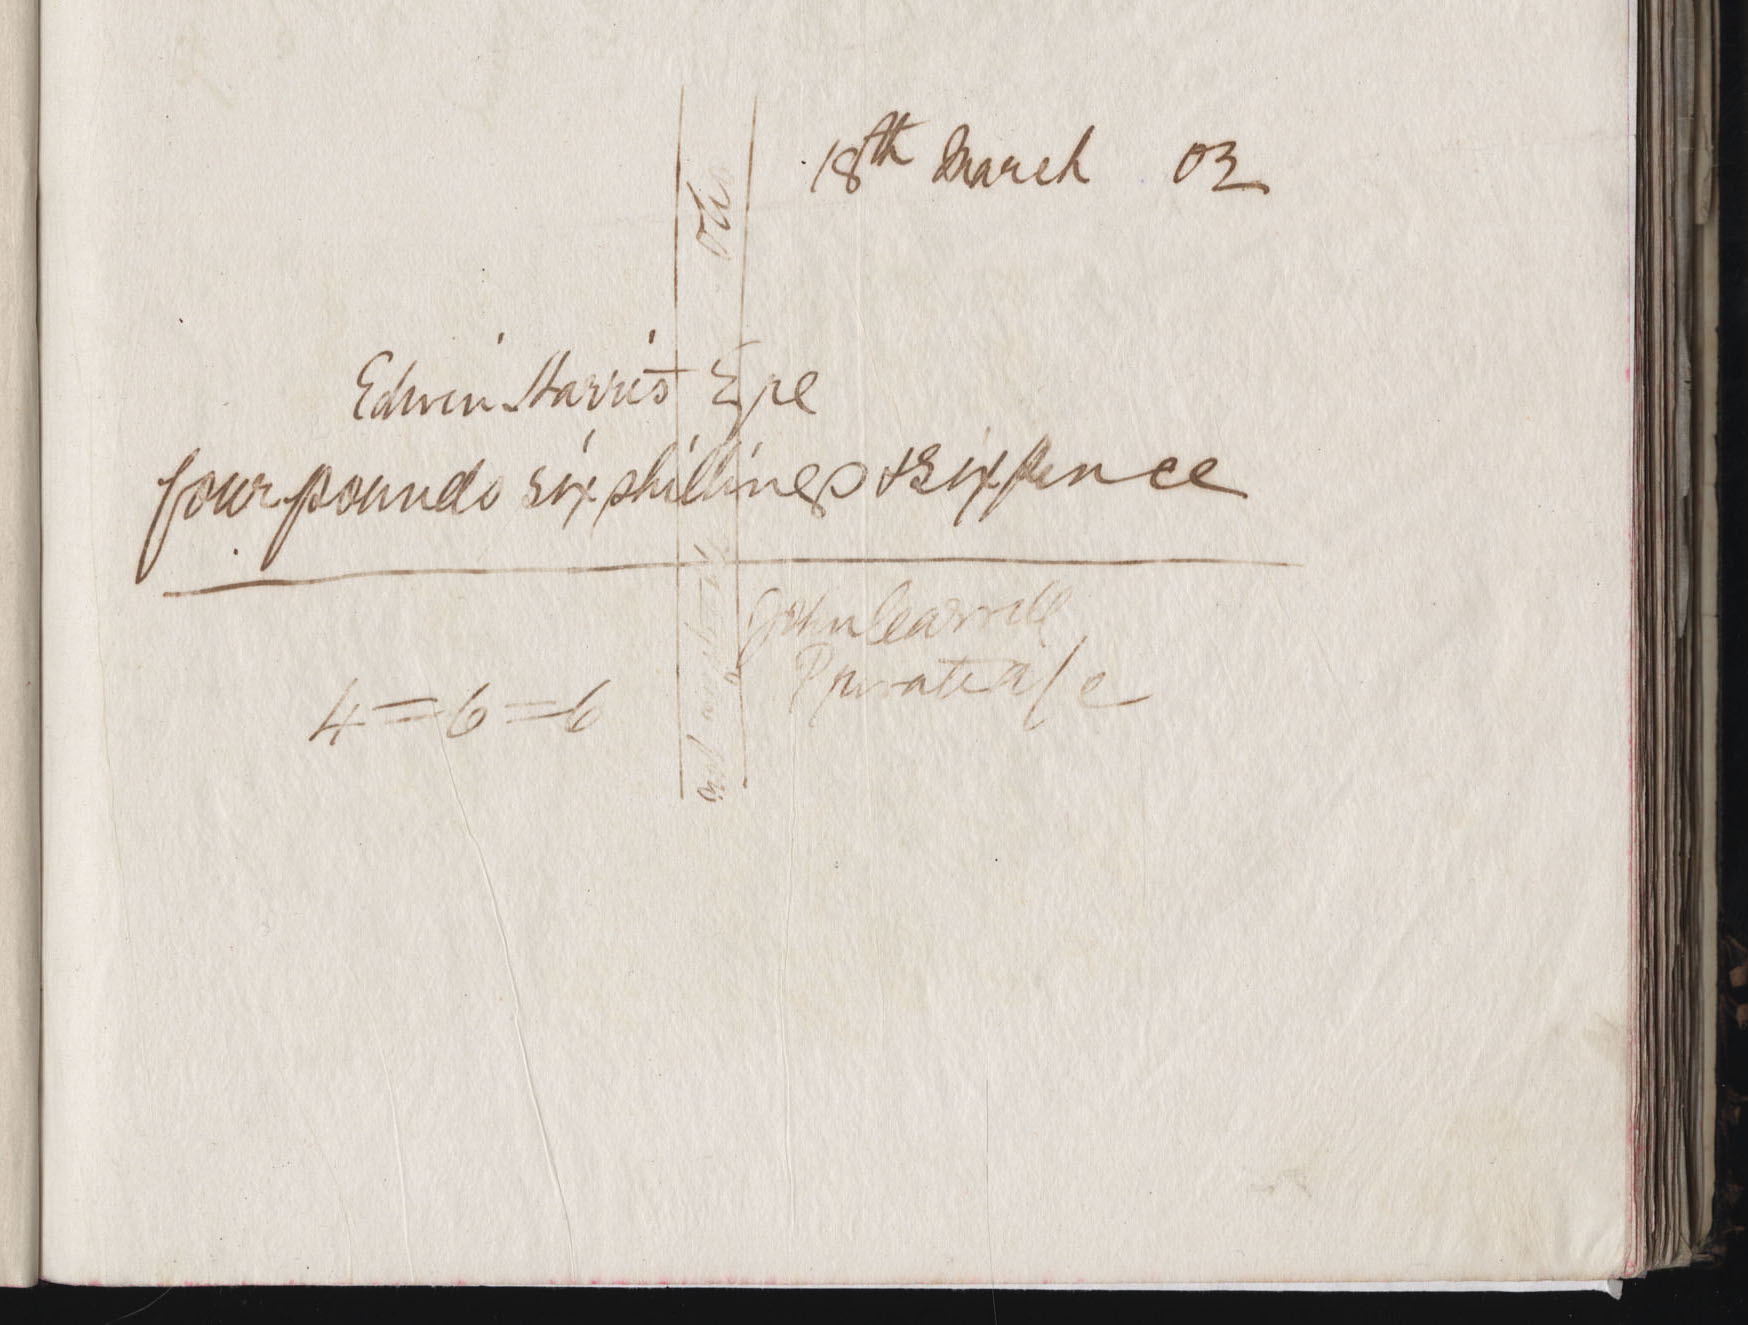 18th March 03
Edwin Harris Esqre
four pounds six shillings & sixpence
4=6=6
John
Private a/c